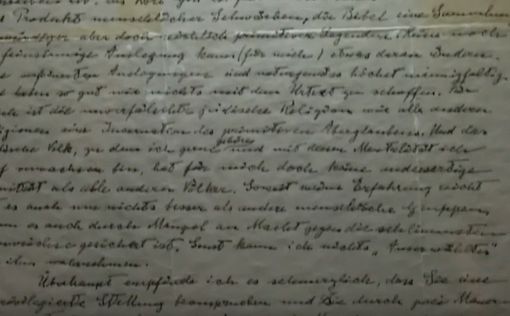 Produkt menschlicher Schwächen, die Bibel eine Sammlun
würdiger aber doch reichlich primitiver Legenden. Keine noch
feinsinnige Auslegung kann (für mich) etwas daran ändern.
verfeinerten Auslegungen sind naturgemäss höchst mannigfaltig
haben so gut wie nichts mit dem Urtext zu schaffen. Für
ist die unverfälschte jüdische Religion wie alle anderen
igionen eine Incarnation des primitiven Aberglaubens. Und das
Volk, zu dem ich gerne gehöre und mit dessen Mentalität ich
verwachsen bin, hat für mich doch keine andersartige
als alle anderen Völker. Soweit meine Erfahrung reicht
es auch um nichts besser als andere menschliche Gruppen
es auch durch Mangel an Macht gegen die schlimmsten
wüchse gesichert ist. Sonst kann ich nichts „Auserwähltes"
ihm wahrnehmen.
Überhaupt empfinde ich es schmerzlich, dass Sie eine
privilegierte Stellung beanspruchen und Sie durch zwei Mauern